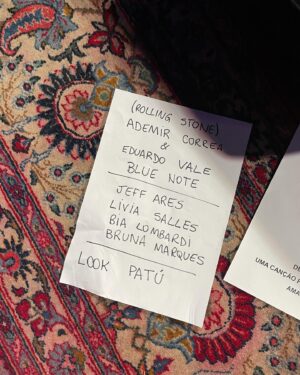 (ROLLING STONE)
ADEMIR CORREA
&
EDUARDO VALE
BLUE NOTE
JEFF ARES
LIVIA SALLES
BIA LOMBARDI
BRUNA MARQUES
LOOK PATÚ
DE
UMA CANÇÃO P
AMA